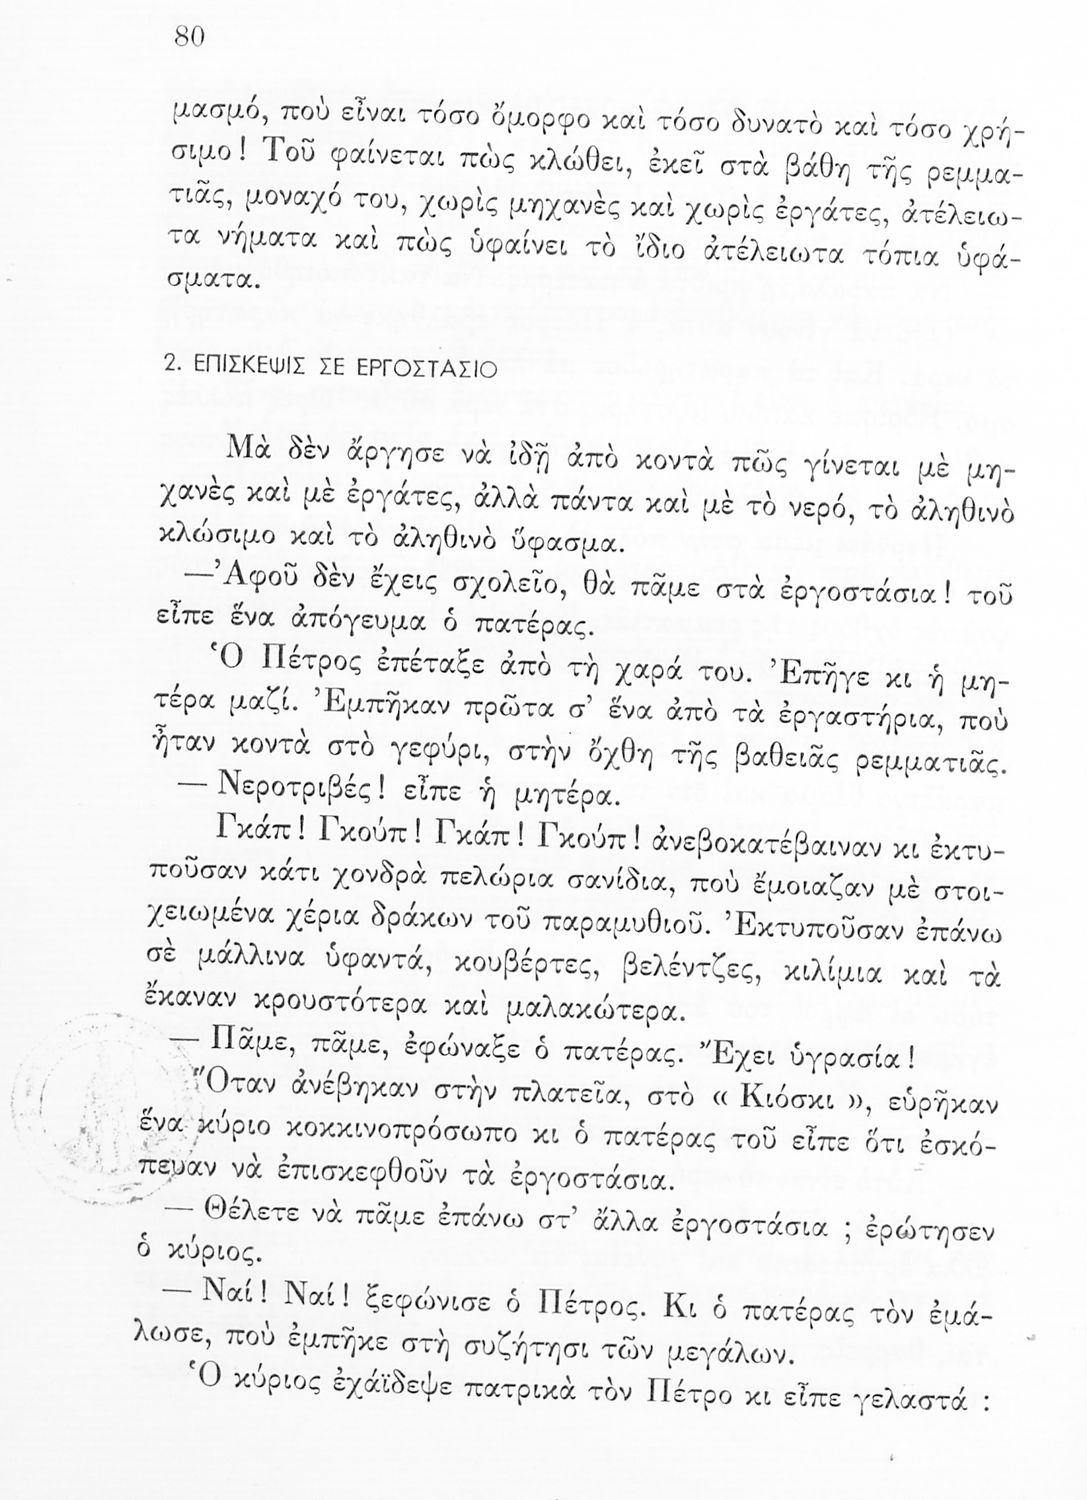 80
μασμό, ποὺ εἶναι τόσο ὄμορφο καὶ τόσο δυνατὸ καὶ τόσο χρή-
σιμο! Τοῦ φαίνεται πὼς κλώθει, ἐκεῖ στὰ βάθη τῆς ρεμμα-
τιᾶς, μοναχό του, χωρὶς μηχανὲς καὶ χωρὶς ἐργάτες, ἀτέλειω-
τα νήματα καὶ πὼς ὑφαίνει τὸ ἴδιο ἀτέλειωτα τόπια ὑφά-
σματα.
2. ΕΠΙΣΚΕΨΙΣ ΣΕ ΕΡΓΟΣΤΑΣΙΟ
Μὰ δὲν ἄργησε νὰ ἰδῇ ἀπὸ κοντὰ πῶς γίνεται μὲ μη-
χανὲς καὶ μὲ ἐργάτες, ἀλλὰ πάντα καὶ μὲ τὸ νερό, τὸ ἀληθινὸ
κλώσιμο καὶ τὸ ἀληθινὸ ὕφασμα.
—Ἀφοῦ δὲν ἔχεις σχολεῖο, θὰ πᾶμε στὰ ἐργοστάσια! τοῦ
εἶπε ἕνα ἀπόγευμα ὁ πατέρας.
Ὁ Πέτρος ἐπέταξε ἀπὸ τὴ χαρά του. Ἐπῆγε κι ἡ μη-
τέρα μαζί. Ἐμπῆκαν πρῶτα σ' ἕνα ἀπὸ τὰ ἐργαστήρια, ποὺ
ἦταν κοντὰ στὸ γεφύρι, στὴν ὄχθη τῆς βαθειᾶς ρεμματιᾶς.
— Νεροτριβές! εἶπε ἡ μητέρα.
Γκάπ! Γκούπ! Γκάπ! Γκούπ! ἀνεβοκατέβαιναν κι ἐκτυ-
ποῦσαν κάτι χονδρὰ πελώρια σανίδια, ποὺ ἔμοιαζαν μὲ στοι-
χειωμένα χέρια δράκων τοῦ παραμυθιοῦ. Ἐκτυποῦσαν ἐπάνω
σὲ μάλλινα ὑφαντά, κουβέρτες, βελέντζες, κιλίμια καὶ τὰ
ἔκαναν κρουστότερα καὶ μαλακώτερα.
— Πᾶμε, πᾶμε, ἐφώναξε ὁ πατέρας. Ἔχει ὑγρασία!
Ὅταν ἀνέβηκαν στὴν πλατεῖα, στὸ « Κιόσκι », εὑρῆκαν
ἕνα κύριο κοκκινοπρόσωπο κι ὁ πατέρας τοῦ εἶπε ὅτι ἐσκό-
πευαν νὰ ἐπισκεφθοῦν τὰ ἐργοστάσια.
— Θέλετε νὰ πᾶμε ἐπάνω στ' ἄλλα ἐργοστάσια ; ἐρώτησεν
ὁ κύριος.
— Ναί! Ναί! ξεφώνισε ὁ Πέτρος. Κι ὁ πατέρας τὸν ἐμά-
λωσε, ποὺ ἐμπῆκε στὴ συζήτησι τῶν μεγάλων.
Ὁ κύριος ἐχάϊδεψε πατρικὰ τὸν Πέτρο κι εἶπε γελαστά :